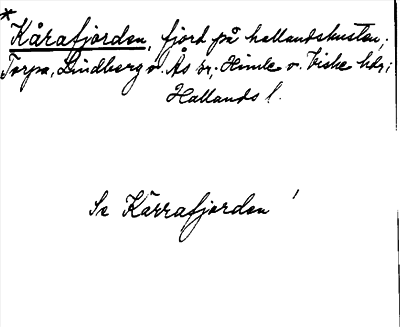 * Kårafjorden, fjord på hallandskusten;
Torpa, Lindberg o. Ås sr; Himle o. Viske hdr;
Hallands l.
Se Kärrafjorden !